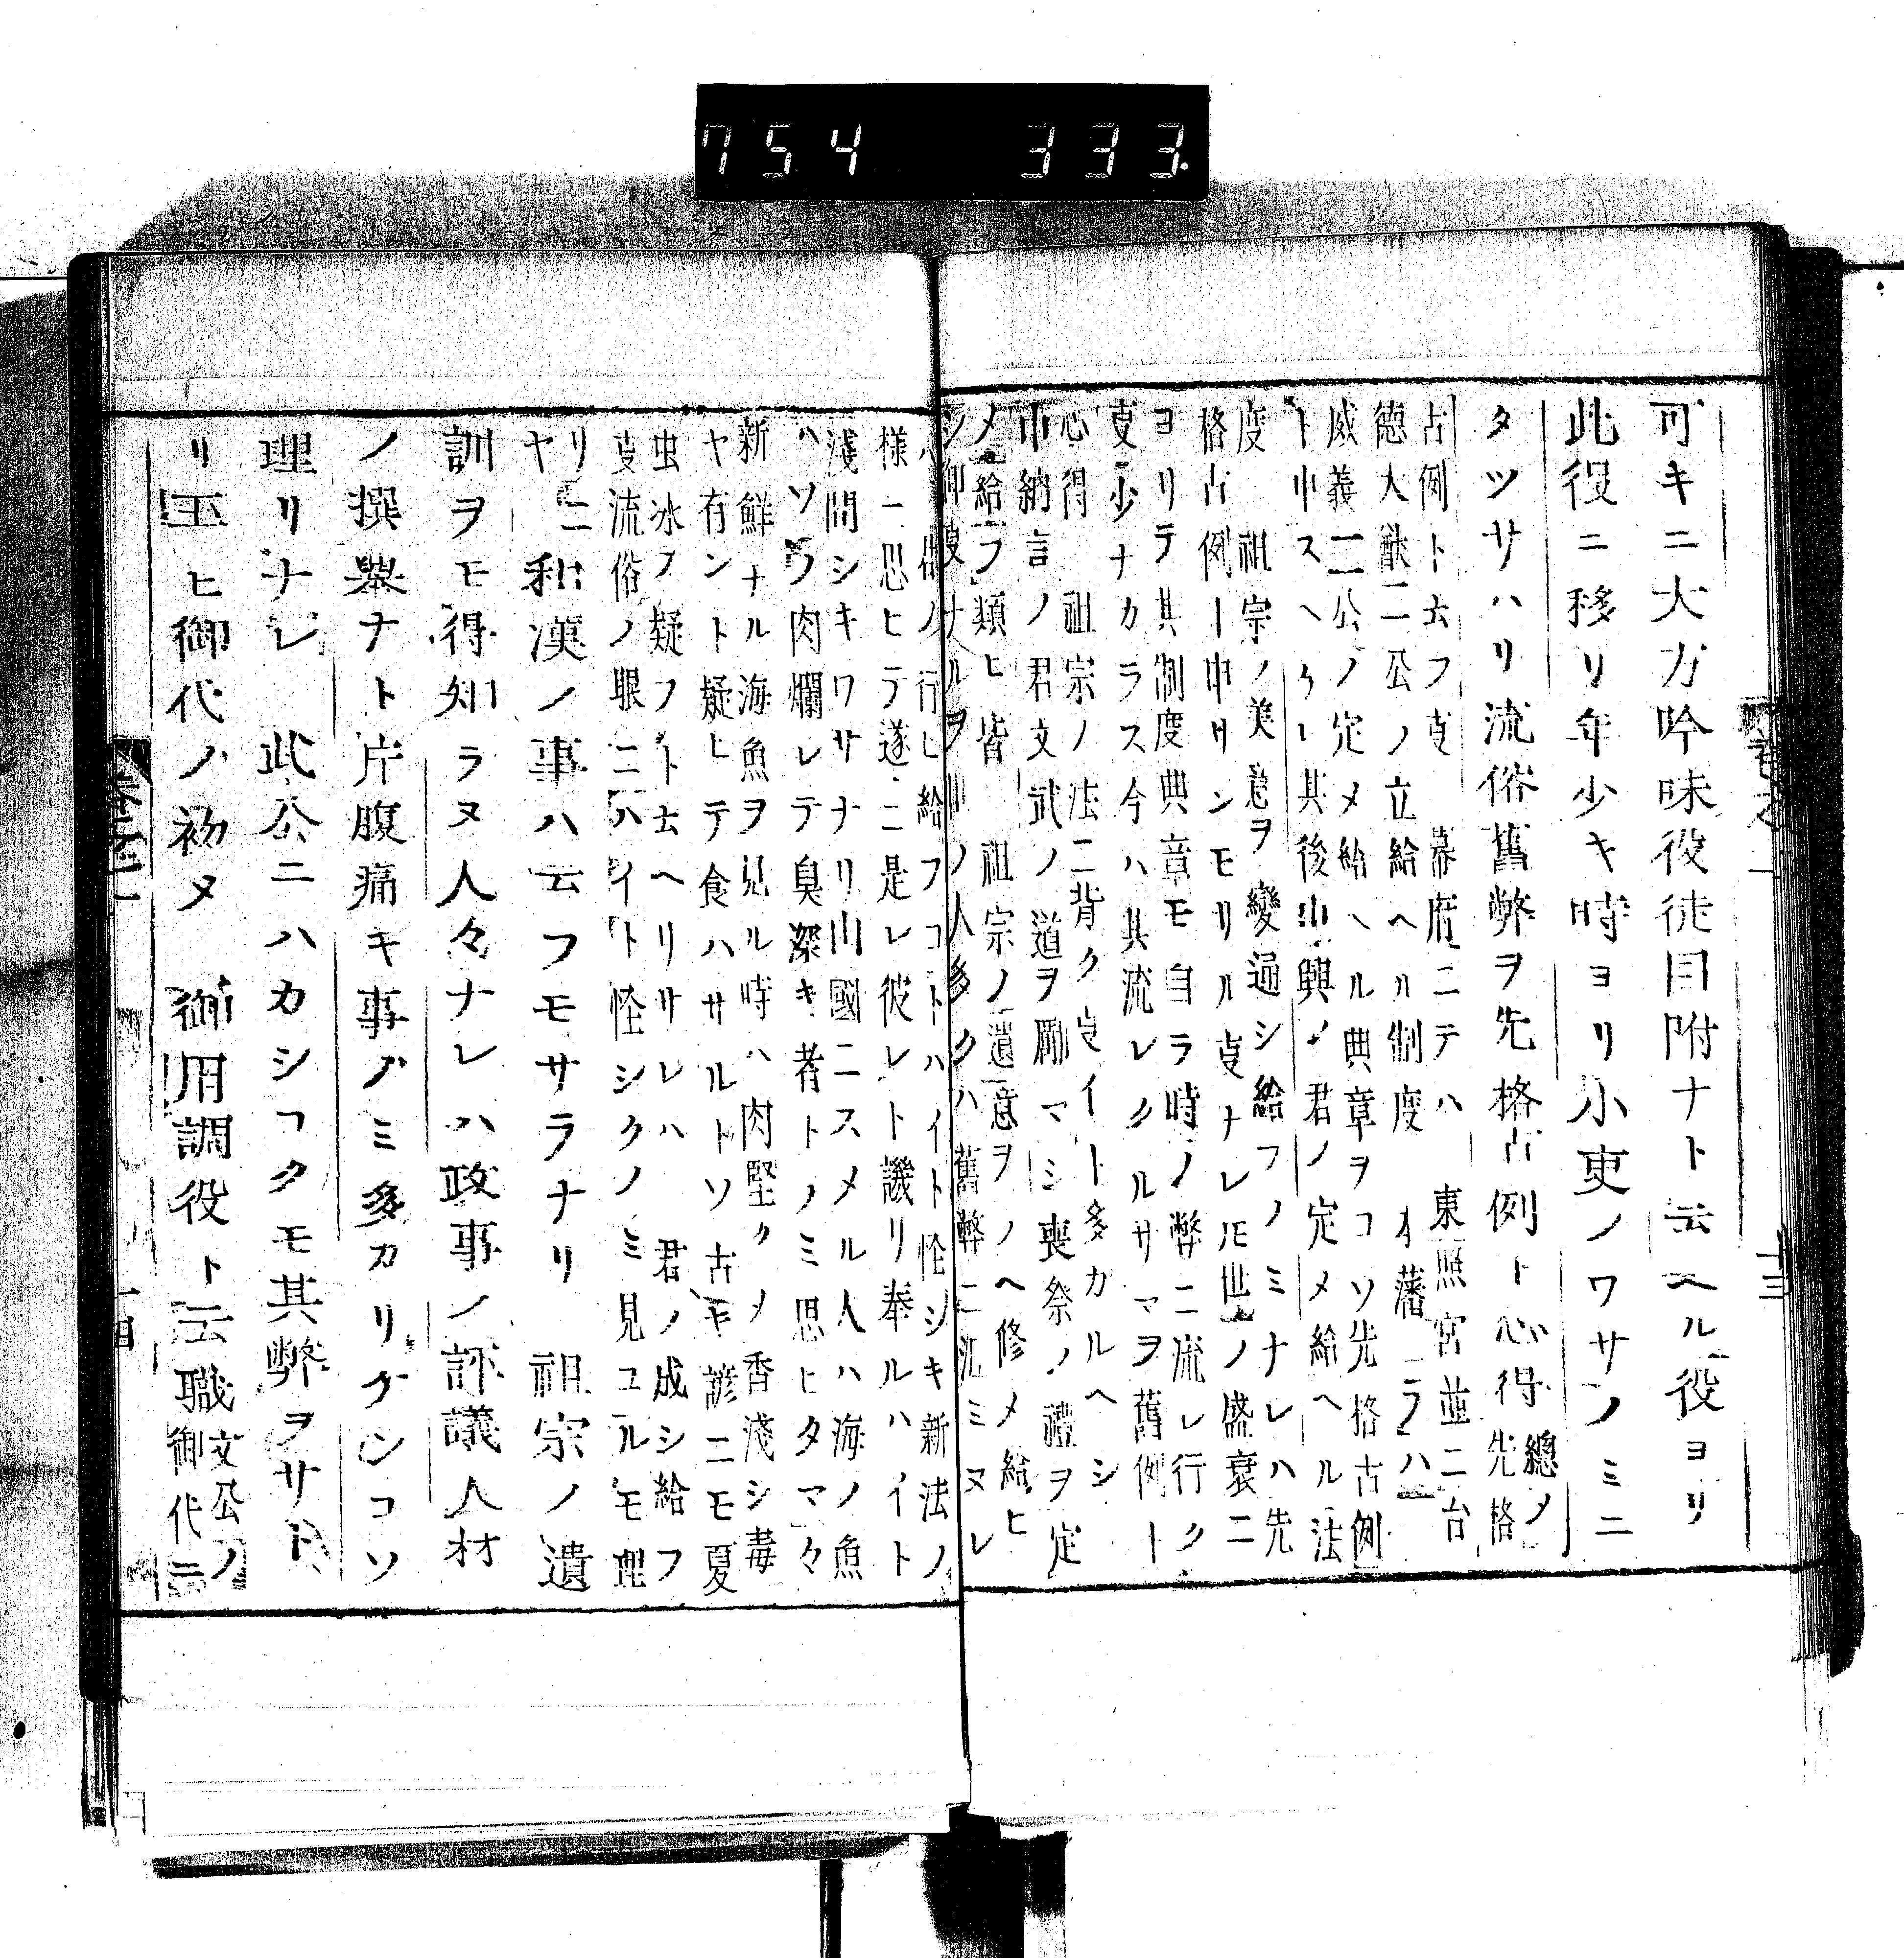 754 333.
可キニ大方吟味役徒目附ナト云ヘル役ヨリ
此役ニ移リ年少キ時ヨリ小吏ノワサノミニ
タツサハリ流俗舊弊ヲ先格古例ト心得總メ先格
古例ト云フ叓 幕府ニテハ 東照宮並ニ台
德大猷二公ノ立給ヘル制度 才藩ニラハ
威義二公ノ定メ給ヘル典章ヲコソ先格古例
ト申スヘケレ其後中興ノ君ノ定メ給ヘル法
度 祖宗ノ美意ヲ變通シ給フノミナレハ先
格古例ト申サンモサル叓ナレ𪜈世ノ盛衰ニ
ヨリテ其制度典章モ自ラ時ノ弊ニ流レ行ク
叓少ナカラス今ハ其流レクルサマヲ舊例ト
心得 祖宗ノ法ニ背ク叓イト多カルヘシ
中納言ノ君文武ノ道ヲ勵マシ喪祭ノ禮ヲ定
メ給フ類ヒ皆 祖宗ノ遺意ヲノヘ修メ給ヒ
シ御叓ナルヲ世ノ人多クハ舊弊ニ泥ミヌレ
ハ君ノ行ヒ給フコトハイト怪シキ新法ノ
樣ニ思ヒテ遂ニ是レ彼レト譏リ奉ルハイト
淺間シキワサナリ山國ニスメル人ハ海ノ魚
ハソノ肉爛レテ臭深キ者トノミ思ヒタマ々
新鮮ナル海魚ヲ見ル時ハ肉堅クメ香淺シ毒
ヤ有ント疑ヒテ食ハサルトソ古キ諺ニモ夏
虫氷ヲ疑フト云ヘリサレハ 君ノ成シ給フ
叓流俗ノ眼ニハイト怪シクノミ見ユルモ理
リニ
ヤ 和漢ノ事ハ云フモサラナリ 祖宗ノ遺
訓ヲモ得知ラヌ人々ナレハ政事ノ評議人材
ノ撰擧ナト片腹痛キ事ノミ多カリケンコソ
理リナレ 此公ニハカシコクモ其弊ヲサト
リ玉ヒ御代ノ初メ 御用調役ト云職文公ノ
御代ニ